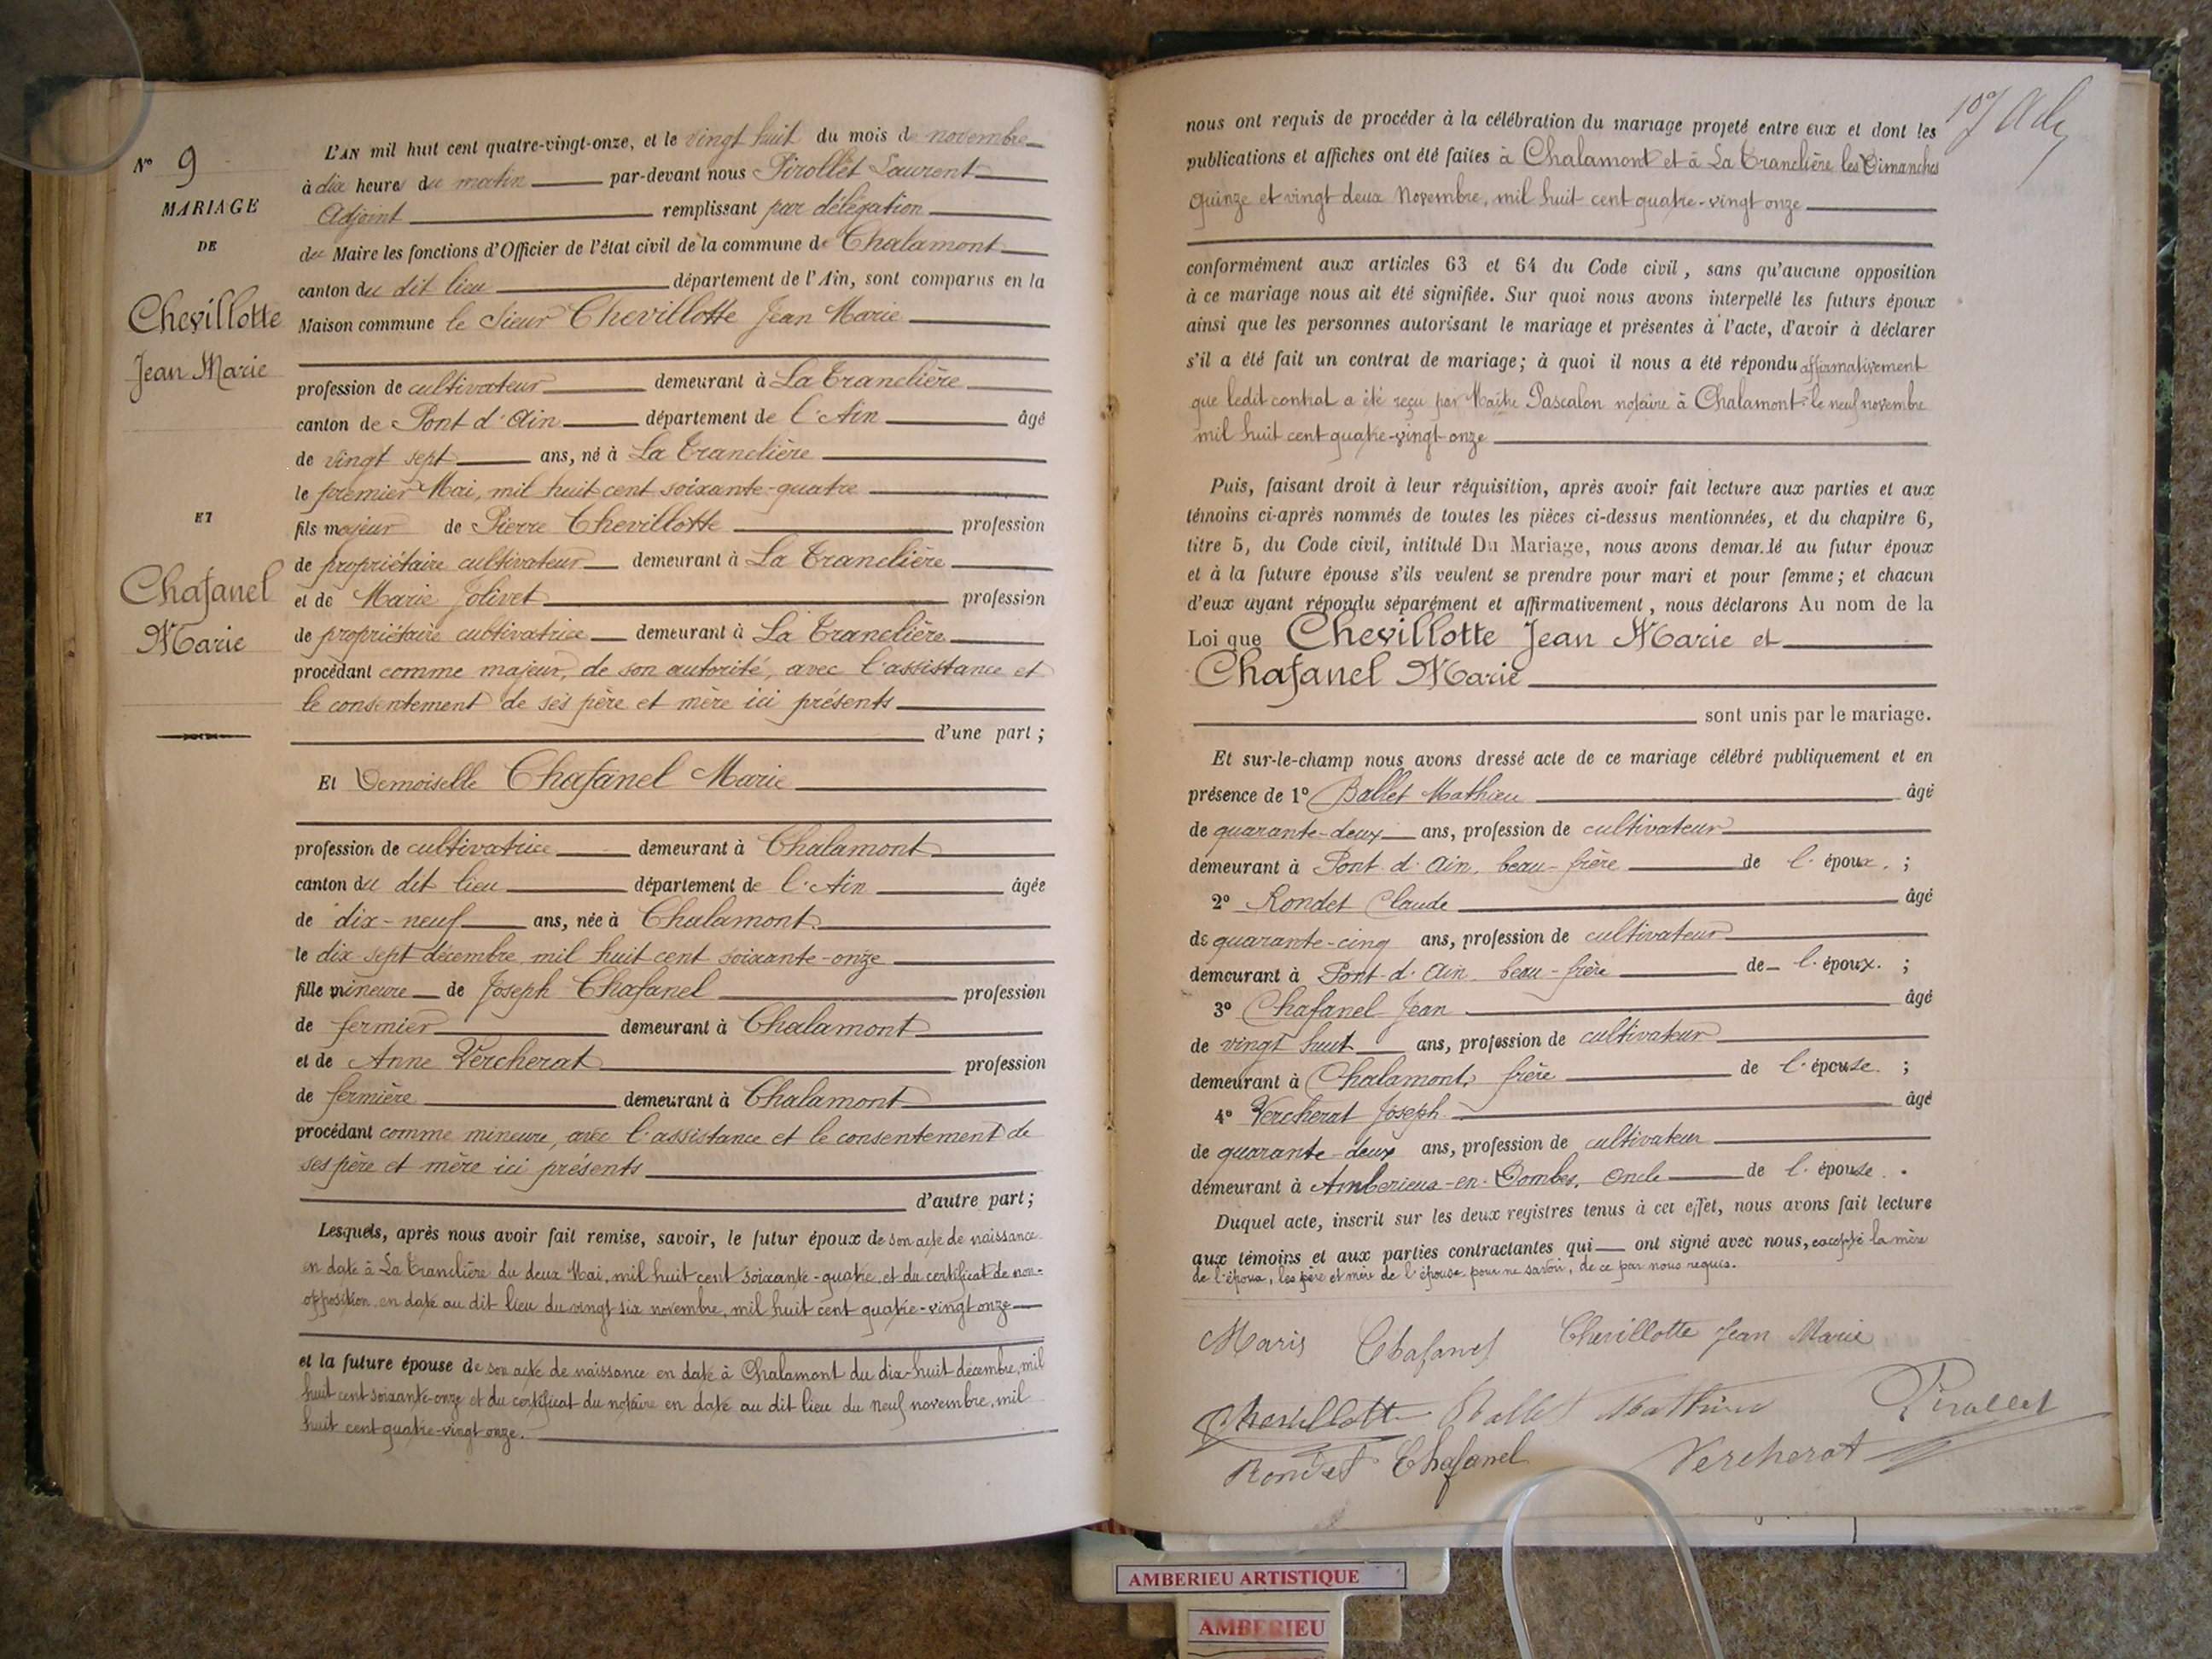 N° 9
MARIAGE
DE
Chevillotte
Jean Marie
ET
Chafanel
Marie
L'AN mil huit cent quatre-vingt-onze, et le vingt huit du mois de novembre
à dix heures du matin par-devant nous Pirollet Laurent
Adjoint remplissant par délégation
du Maire les fonctions d'Officier de l'état civil de la commune de Chalamont
canton du dit lieu département de l'Ain, sont comparus en la
Maison commune le Sieur Chevillotte Jean Marie
profession de cultivateur demeurant à La Tranclière
canton de Pont d'Ain département de l'Ain âgé
de vingt sept ans, né à La Tranclière
le premier Mai, mil huit cent soixante-quatre
fils majeur de Pierre Chevillotte profession
de propriétaire cultivateur demeurant à La Tranclière
et de Marie Jolivet profession
de propriétaire cultivatrice demeurant à La Tranclière
procédant comme majeur, de son autorité, avec l'assistance et
le consentement de ses père et mère ici présents
d'une part ;
Et Demoiselle Chafanel Marie
profession de cultivatrice demeurant à Chalamont
canton du dit lieu département de l'Ain âgée
de dix-neuf ans, née à Chalamont
le dix sept décembre mil huit cent soixante-onze
fille mineure de Joseph Chafanel profession
de fermier demeurant à Chalamont
et de Anne Vercherat profession
de fermière demeurant à Chalamont
procédant comme mineure, avec l'assistance et le consentement de
ses père et mère ici présents
d'autre part ;
Lesquels, après nous avoir fait remise, savoir, le futur époux de son acte de naissance
en date à La Tranclière du deux Mai, mil huit cent soixante-quatre, et du certificat de non-
opposition en date au dit lieu du vingt six novembre, mil huit cent quatre-vingt onze
et la future épouse de son acte de naissance en date à Chalamont du dix-huit décembre, mil
huit cent soixante-onze et du certificat du notaire en date au dit lieu du neuf novembre, mil
huit cent quatre-vingt onze.
107
nous ont requis de procéder à la célébration du mariage projeté entre eux et dont les
publications et affiches ont été faites à Chalamont et à La Tranclière les Dimanches
quinze et vingt deux Novembre, mil huit cent quatre-vingt onze
conformément aux articles 63 et 64 du Code civil, sans qu'aucune opposition
à ce mariage nous ait été signifiée. Sur quoi nous avons interpellé les futurs époux
ainsi que les personnes autorisant le mariage et présentes à l'acte, d'avoir à déclarer
s'il a été fait un contrat de mariage ; à quoi il nous a été répondu affirmativement
que ledit contrat a été reçu par Maître Pascalon notaire à Chalamont le neuf novembre
mil huit cent quatre-vingt-onze
Puis, faisant droit à leur réquisition, après avoir fait lecture aux parties et aux
témoins ci-après nommés de toutes les pièces ci-dessus mentionnées, et du chapitre 6,
titre 5, du Code civil, intitulé Du Mariage, nous avons demandé au futur époux
et à la future épouse s'ils veulent se prendre pour mari et pour femme ; et chacun
d'eux ayant répondu séparément et affirmativement, nous déclarons Au nom de la
Loi que Chevillotte Jean Marie et
Chafanel Marie
sont unis par le mariage.
Et sur-le-champ nous avons dressé acte de ce mariage célébré publiquement et en
présence de 1° Ballet Mathieu âgé
de quarante-deux ans, profession de cultivateur
demeurant à Pont d'Ain, beau-frère de l'époux. ;
2° Rondet Claude âgé
de quarante-cinq ans, profession de cultivateur
demeurant à Pont-d'Ain beau-frère de l'époux. ;
3° Chafanel Jean âgé
de vingt huit ans, profession de cultivateur
demeurant à Chalamont, frère de l'épouse ;
4° Vercherat Joseph âgé
de quarante-deux ans, profession de cultivateur
demeurant à Amberieux-en-Dombes, Oncle de l'épouse.
Duquel acte, inscrit sur les deux registres tenus à cet effet, nous avons fait lecture
aux témoins et aux parties contractantes qui ont signé avec nous, excepté la mère
de l'époux, les père et mère de l'épouse pour ne savoir, de ce par nous requis.
Marie Chafanel Chevillotte Jean Marie
Chevillotte Ballet Mathieu Pirollet
Rondet Chafanel Vercherat
AMBERIEU ARTISTIQUE
AMBERIEU